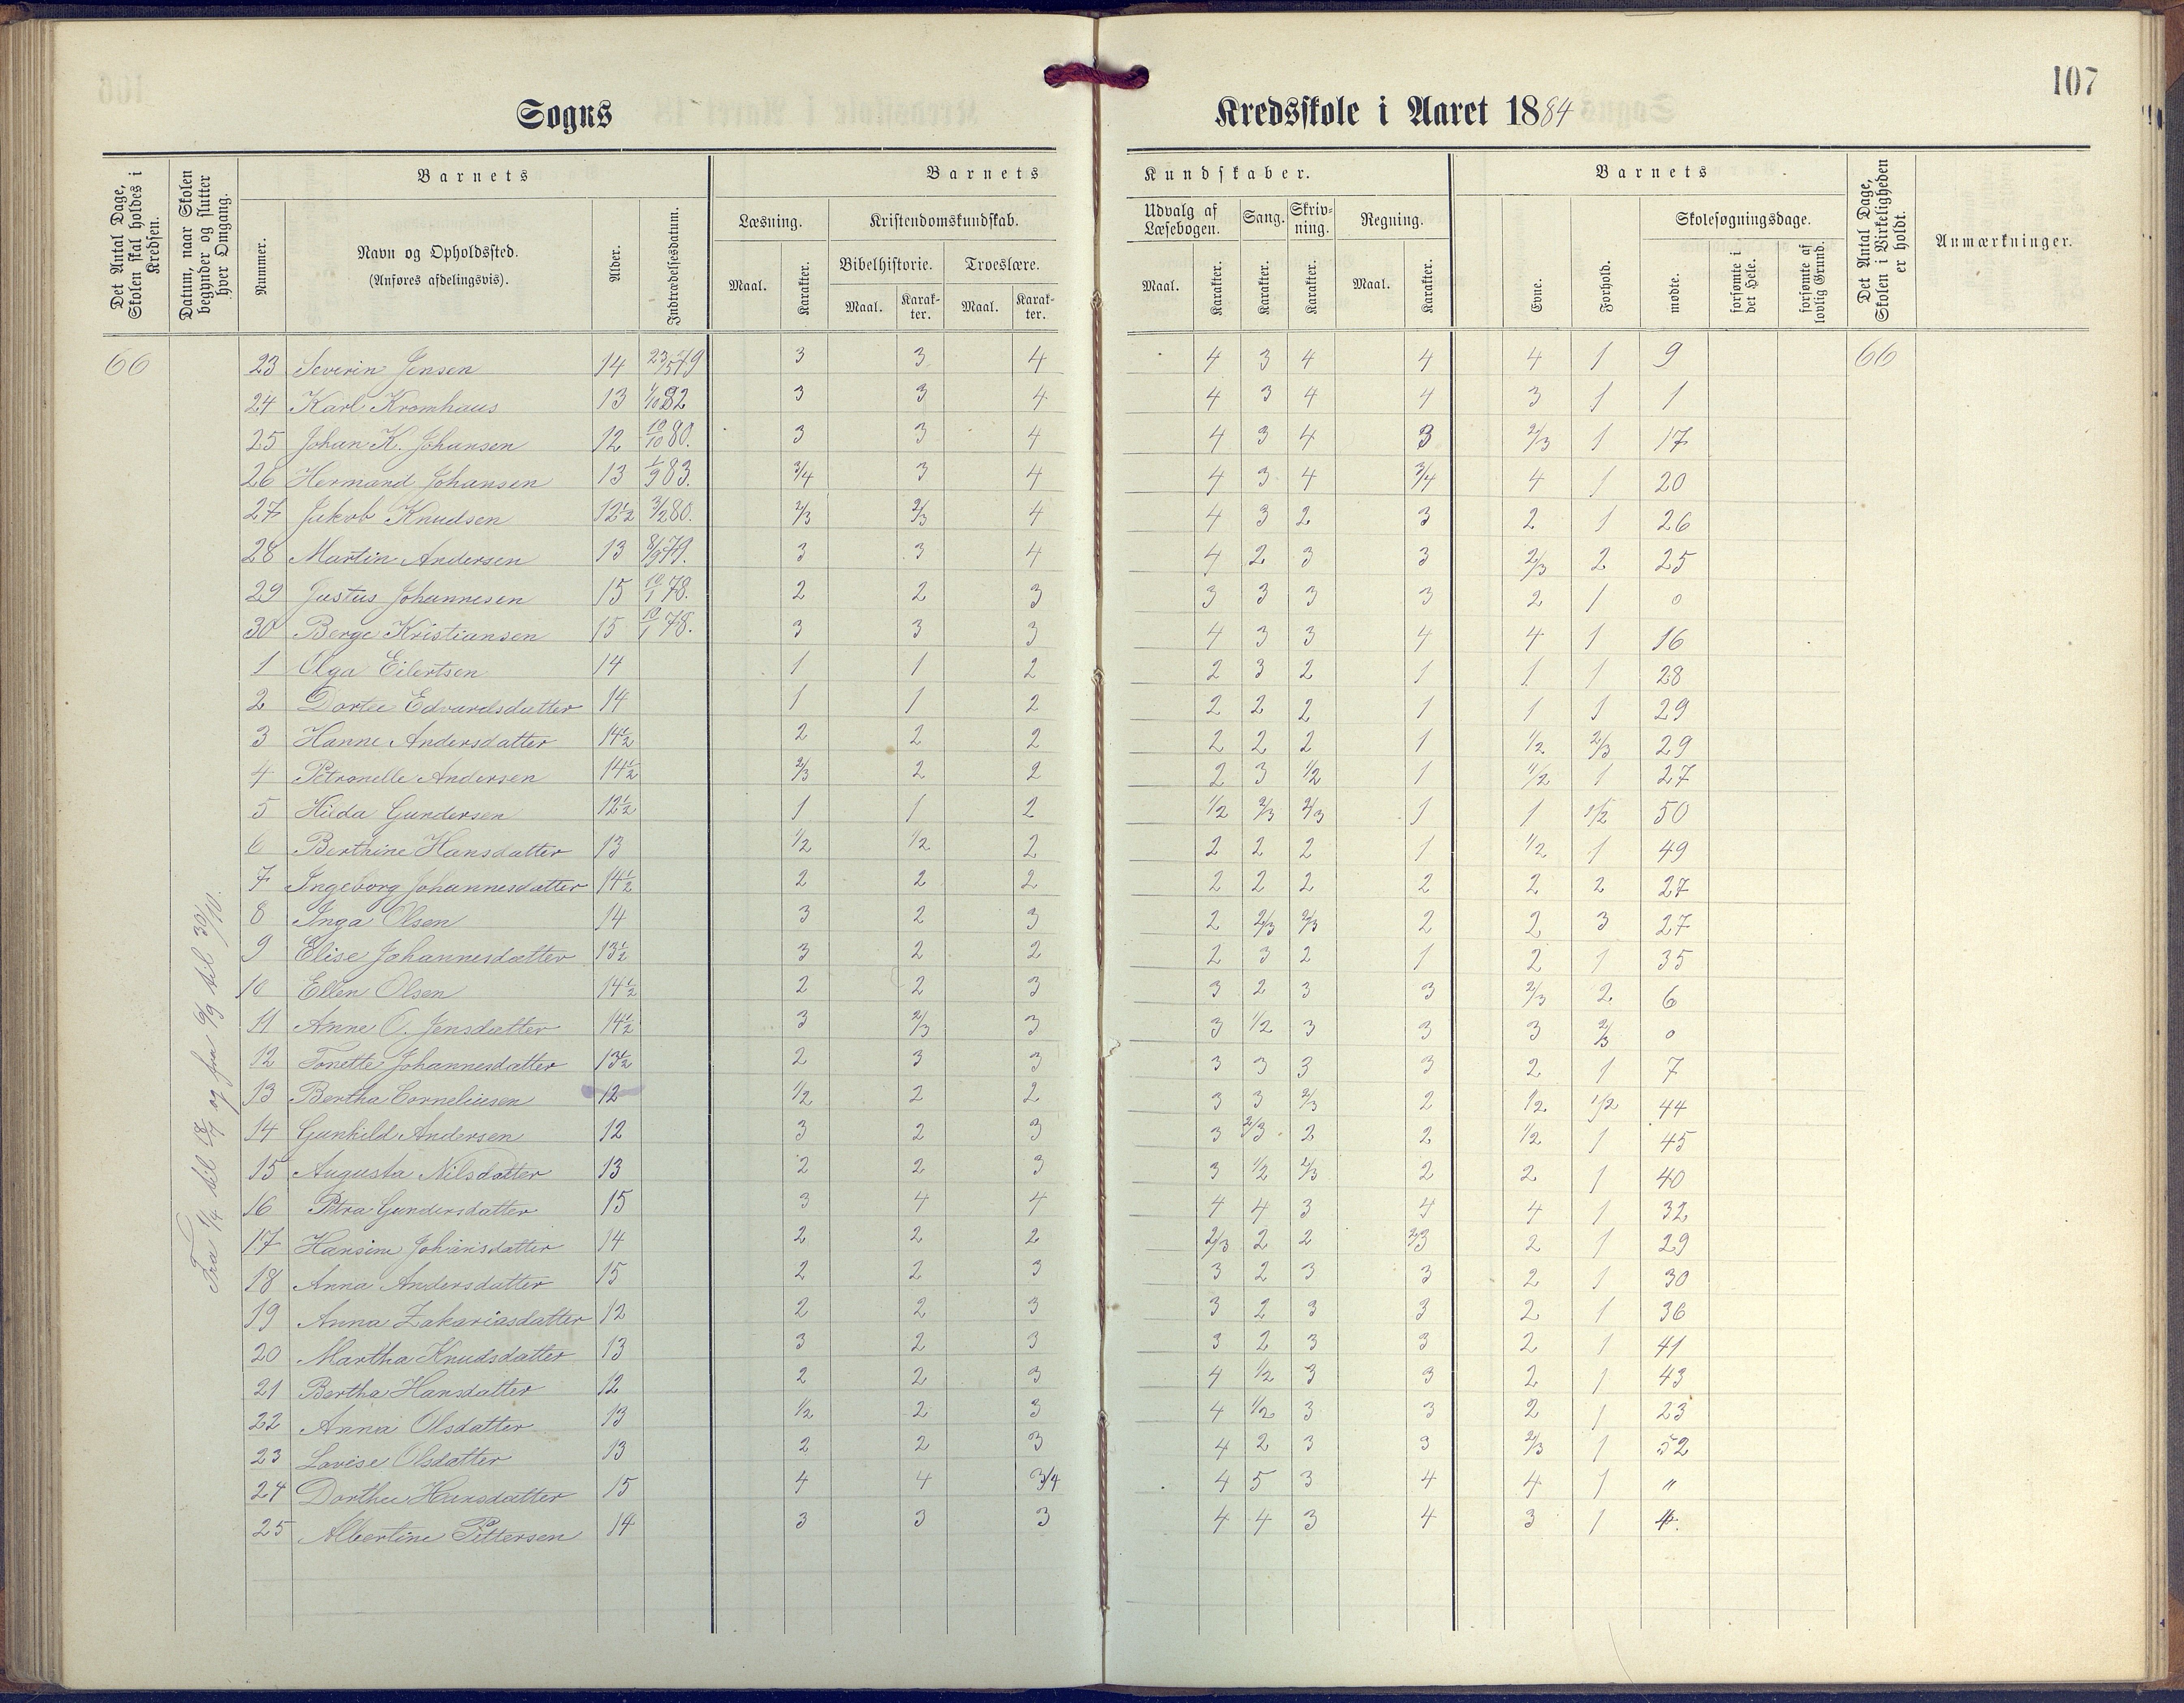 107
Sogns Kredsskole i Aaret 1884
Det Antal Dage, Skolen skal holdes i Kredsen.
Datum, naar Skolen begynder og slutter hver Omgang.
Barnets
Nummer.
Navn og Opholdssted.
(Anføres afdelingsvis).
Alder.
Indtrædelsesdatum.
Barnets Kundskaber.
Læsning.
Maal. Karakter.
Kristendomskundskab.
Bibelhistorie. Troeslære.
Maal. Karakter. Maal. Karakter.
Udvalg af Læsebogen.
Maal. Karakter.
Sang. Karakter.
Skrivning. Karakter.
Regning.
Maal. Karakter.
Barnets
Evne. Forhold.
Skolesøgningsdage.
mødte. forsømte i det Hele. forsømte af lovlig Grund.
Det Antal Dage, Skolen i Virkeligheden er holdt.
Anmærkninger.
Fra 1/4 til 18/7 og fra 6/9 til 30/10.
66 23 Severin Jensen 14 23/5 79 3 3 4 4 3 4 4 4 1 9 66
24 Karl Kromhaus 13 1/10 82 3 3 4 4 3 4 4 3 1 1
25 Johan K. Johansen 12 10/10 80. 3 3 4 4 3 4 3 2/3 1 17
26 Hermand Johansen 13 1/9 83. 3/4 3 4 4 3 4 3/4 4 1 20
27 Jakob Knudsen 12½ 3/2 80. 2/3 2/3 4 4 3 2 3 2 1 26
28 Martin Andersen 13 8/9 79. 3 3 4 4 2 3 3 2/3 2 25
29 Justus Johannesen 15 10/1 78. 2 2 3 3 3 3 3 2 1 0
30 Berge Kristiansen 15 10/1 78. 3 3 3 4 3 3 4 4 1 16
1 Olga Eilertsen 14 1 1 2 2 3 2 1 1 1 28
2 Dortee Edvardsdatter 14 1 1 2 2 2 2 1 1 1 29
3 Hanne Andersdatter 14½ 2 2 2 2 2 2 1 1/2 2/3 29
4 Petronelle Andersen 14½ 2/3 2 2 2 3 1/2 1 1/2 1 27
5 Hilda Gundersen 12½ 1 1 2 1/2 2/3 2/3 1 1 1/2 50
6 Berthine Hansdatter 13 1/2 1/2 2 2 2 2 1 1/2 1 49
7 Ingeborg Johannesdatter 14½ 2 2 2 2 2 2 2 2 2 27
8 Inga Olsen 14 3 2 3 2 2/3 2/3 2 2 3 27
9 Elise Johannesdatter 13½ 3 2 2 2 3 2 1 2 1 35
10 Ellen Olsen 14½ 2 2 3 3 2 3 3 2/3 2 6
11 Anne O. Jensdatter 14½ 3 2/3 3 3 1/2 3 3 3 2/3 0
12 Tonette Johannesdatter 13½ 2 3 3 3 3 3 3 2 1 7
13 Bertha Corneliusen 12 1/2 2 2 3 3 2/3 2 1/2 1/2 44
14 Gunhild Andersen 12 3 2 3 3 2/3 2 2 1/2 1 45
15 Augusta Nilsdatter 13 2 2 3 3 1/2 2/3 2 2 1 40
16 Petra Gundersdatter 15 3 4 4 4 4 3 4 4 1 32
17 Hansine Johansdatter 14 2 2 2 2/3 2 2 2/3 2 1 29
18 Anna Andersdatter 15 2 2 3 3 2 3 3 2 1 30
19 Anna Zakariasdatter 12 2 2 3 3 2 3 3 2 1 36
20 Martha Knudsdatter 13 3 2 3 3 2 3 3 2 1 41
21 Bertha Hansdatter 12 2 2 3 4 1/2 3 3 2 1 43
22 Anna Olsdatter 13 1/2 2 3 4 1/2 3 3 2 1 23
23 Lovise Olsdatter 13 2 2 3 4 2 3 3 2/3 1 52
24 Dorthee Hansdatter 15 4 4 3/4 4 5 3 4 4 1 "
25 Albertine Pettersen 14 3 3 3 4 4 3 4 3 1 4.